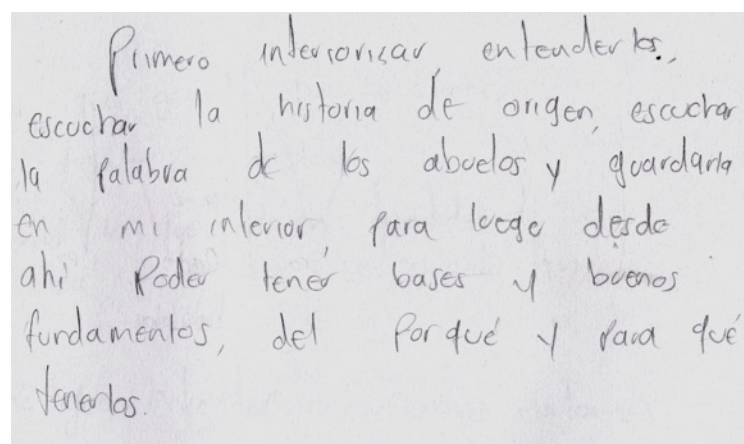 Primero interiorisar, entenderlos,
escuchar la historia de origen, escuchar
la palabra de los abuelos y guardarla
en mi interior, para luego desde
ahí poder tener bases y buenos
fundamentos, del porqué y para qué
tenerlos.